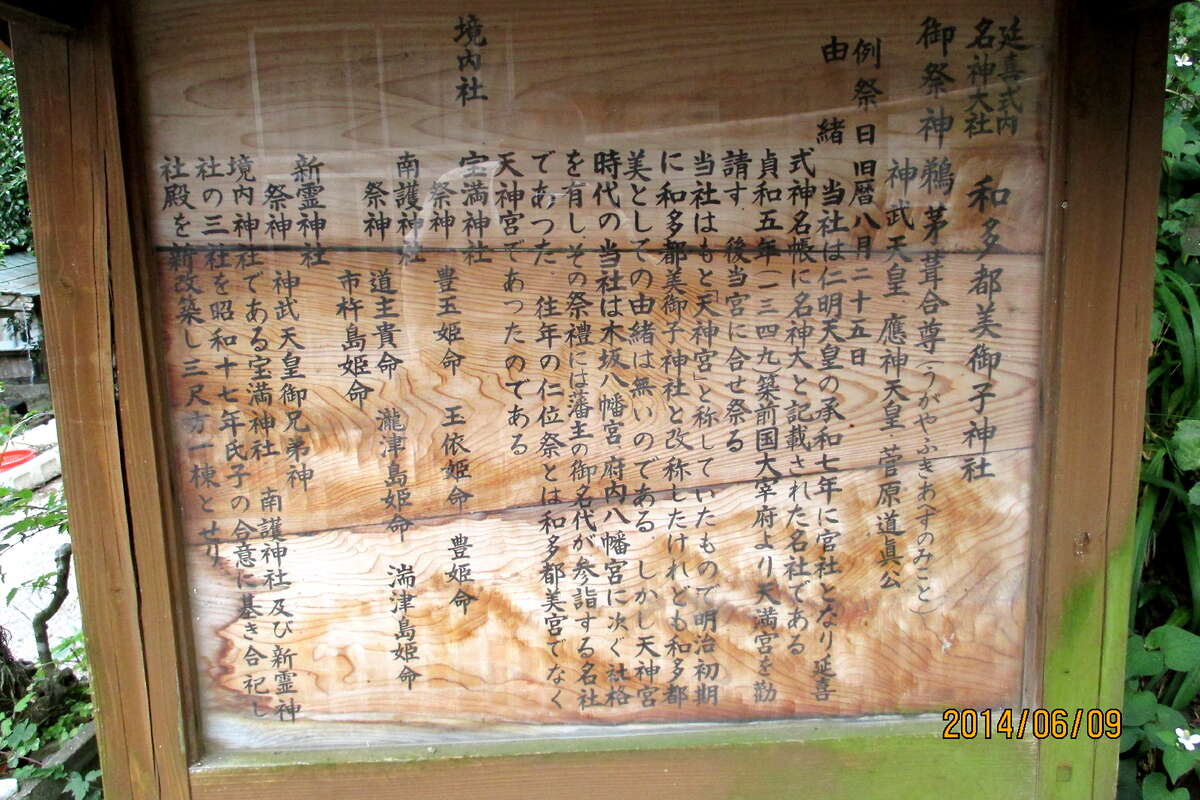 延喜式内
名神大社
和多都美御子神社
御祭神 鵜茅葺合尊(うがやふきあへずのみこと)
神武天皇 應神天皇 菅原道眞公
例祭日 旧暦八月二十五日
由緒
当社は仁明天皇の承和七年に官社となり延喜
式神名帳に名神大と記載された名社である
貞和五年(一三四九)築前国大宰府より天満宮を勧
請す 後当宮に合せ祭る
当社はもと「天神宮」と称していたもので明治初期
に和多都美御子神社と改称したけれども和多都
美としての由緒は無いのである しかし天神宮
時代の当社は木坂八幡宮 府内八幡宮に次ぐ社格
を有し、その祭禮には藩主の御名代が参詣する名社
であつた 往年の仁位祭とは和多都美宮でなく
天神宮であつたのである
境内社
宝満神社
祭神 豊玉姫命 玉依姫命 豊姫命
南護神社
祭神 道主貴命 瀧津島姫命 湍津島姫命
市杵島姫命
新霊神社
祭神 神武天皇御兄弟神
境内神社である宝満神社 南護神社及び新霊神
社の三社を昭和十七年氏子の合意に基き合祀し
社殿を新改築し三尺方一棟とせり
2014/06/09